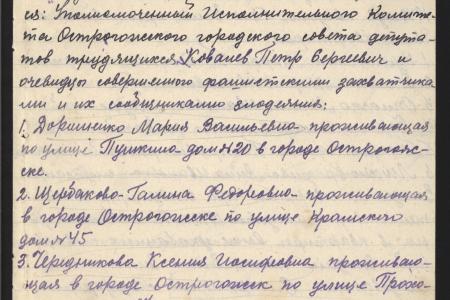 ся: Уполномоченный Исполнительного Комите-
та Острогожского городского совета депута-
тов трудящихся, Ковалев Петр Сергеевич и
очевидцы совершенного фашистскими захватчика-
ми и их сообщниками злодеяния:
1. Дорошенко Мария Васильевна проживающая
по улице Пушкина дом №20 в городе Острогож-
ске.
2. Щербакова Галина Федоровна проживающая
в городе Острогожске по улице Крамского
дом №45
3. Чередникова Ксения Иосифовна прожива-
ющая в городе Острогожск по улице Прохо-